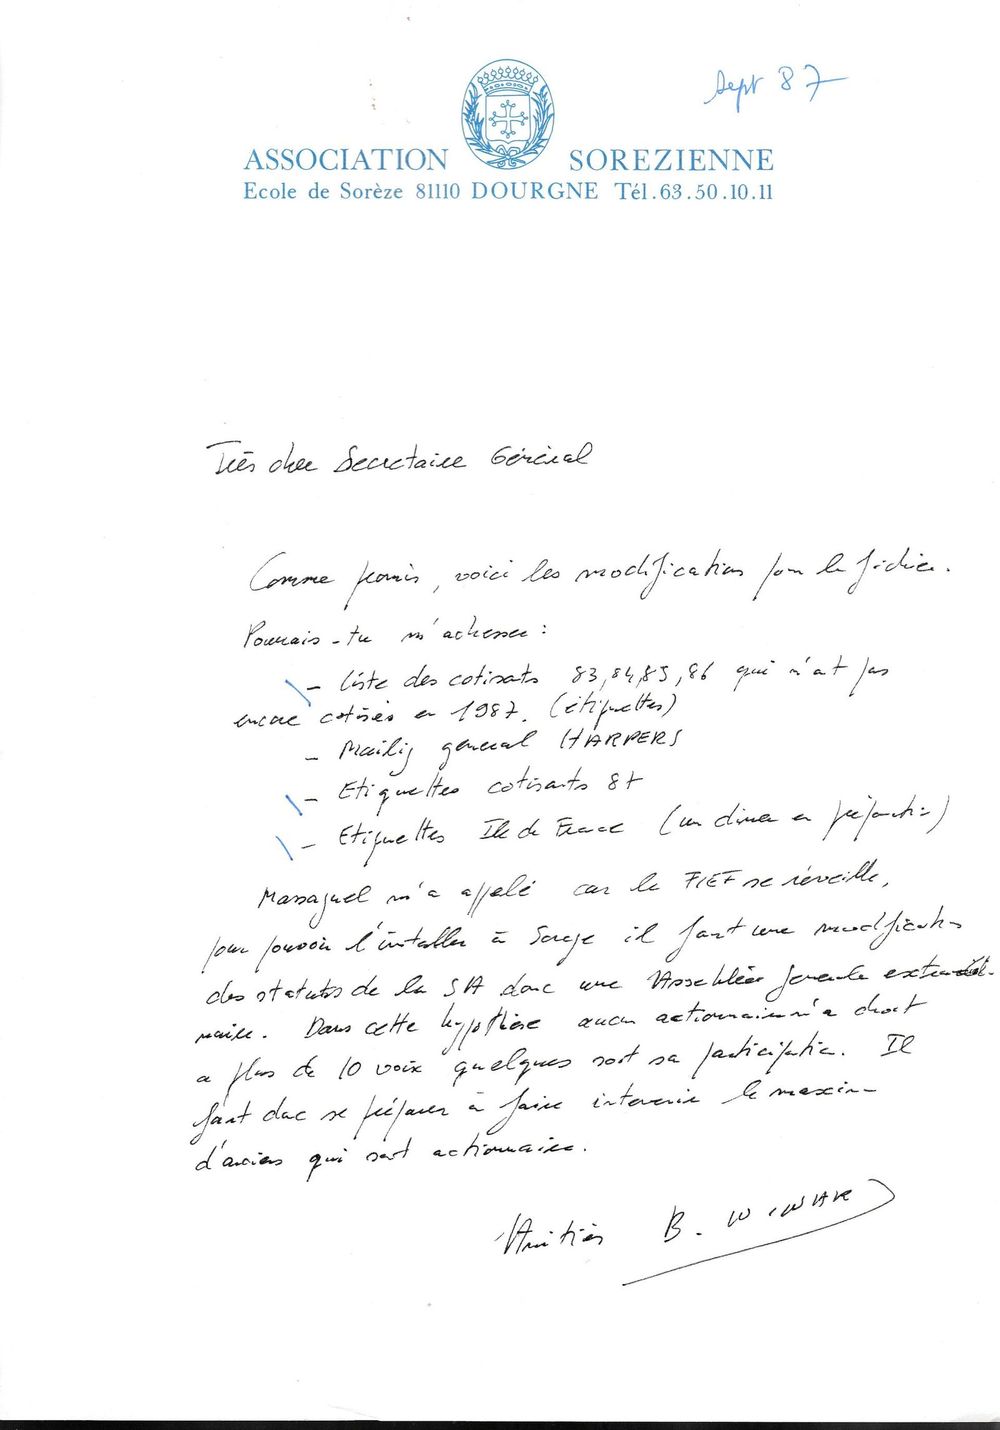 Sept 87
ASSOCIATION SOREZIENNE
Ecole de Sorèze 81110 DOURGNE Tél.63.50.10.11
Très cher Secretaire Général
Comme promis, voici les modifications pour le fichier.
Pourrais-tu m'adresser :
- liste des cotisants 83,84,85,86 qui n'ont pas
encore cotisés en 1987. (étiquettes)
- Mailing general HARPERS
- Etiquettes cotisants 87
- Etiquettes Ile de France (un diner en préparation)
Massaguel m'a appelé car le FIEF se réveille,
pour pouvoir l'installer à Soreze il faut une modification
des statuts de la SA donc une Assemblée generale extraordi-
naire. Dans cette hypothèse aucun actionnaire n'a droit
a plus de 10 voix quelques soit sa participation. Il
faut donc se préparer à faire intervenir le maximum
d'anciens qui sont actionnaires.
Amitiés B. WINAR